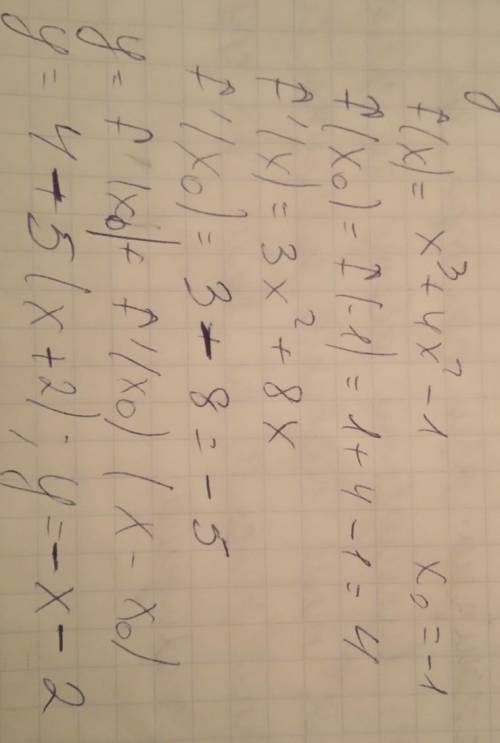 f(x) = x³+4x²-1 x₀ = -1
f(x₀) = f(-1) = 1+4-1 = 4
f'(x) = 3x²+8x
f'(x₀) = 3-8 = -5
y = f'(x₀)+f'(x₀)(x-x₀)
y = 4-5(x+2); y = -x-2